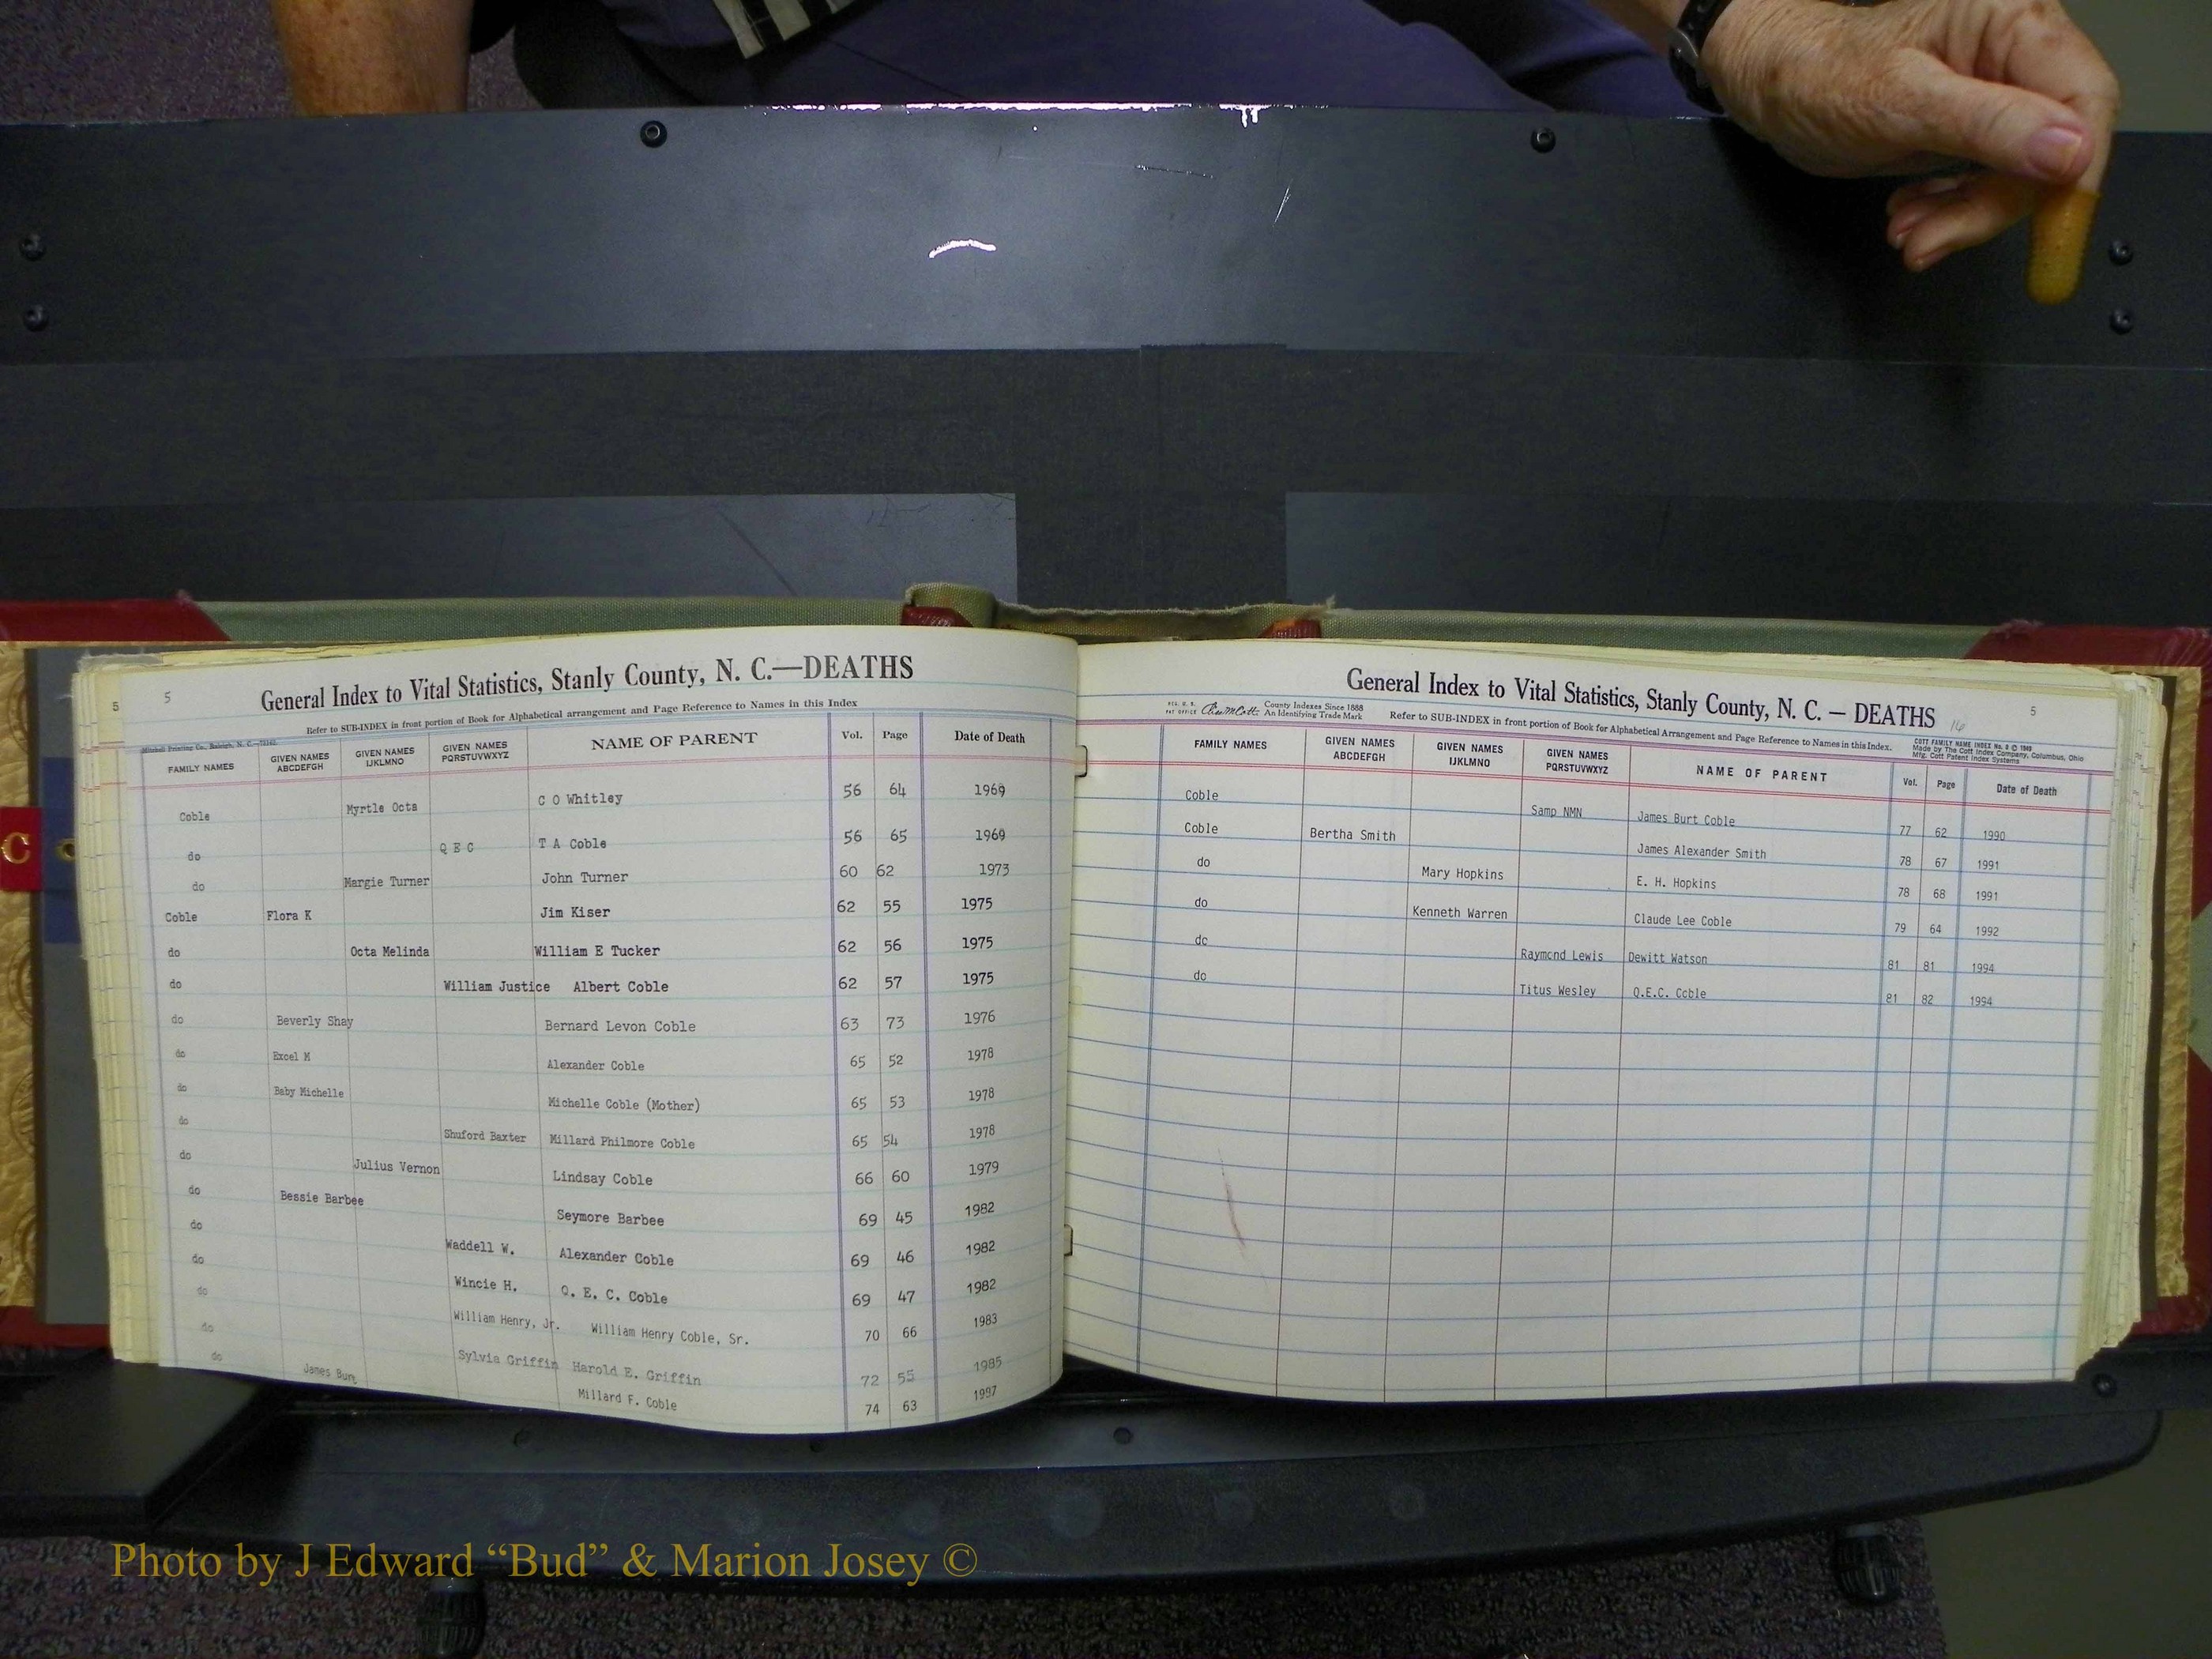 5
5
General Index to Vital Statistics, Stanly County, N. C.—DEATHS
Refer to SUB-INDEX in front portion of Book for Alphabetical arrangement and Page Reference to Names in this Index
Mitchell Printing Co., Raleigh, N. C.
FAMILY NAMES GIVEN NAMES ABCDEFGH GIVEN NAMES IJKLMNO GIVEN NAMES PQRSTUVWXYZ NAME OF PARENT Vol. Page Date of Death
Coble Myrtle Octa C O Whitley 56 64 1969
do Q E C T A Coble 56 65 1969
do Margie Turner John Turner 60 62 1973
Coble Flora K Jim Kiser 62 55 1975
do Octa Melinda William E Tucker 62 56 1975
do William Justice Albert Coble 62 57 1975
do Beverly Shay Bernard Levon Coble 63 73 1976
do Excel M Alexander Coble 65 52 1978
do Baby Michelle Michelle Coble (Mother) 65 53 1978
do Shuford Baxter Millard Philmore Coble 65 54 1978
do Julius Vernon Lindsay Coble 66 60 1979
do Bessie Barbee Seymore Barbee 69 45 1982
do Waddell W. Alexander Coble 69 46 1982
do Wincie H. Q. E. C. Coble 69 47 1982
do William Henry, Jr. William Henry Coble, Sr. 70 66 1983
do Sylvia Griffin Harold E. Griffin 72 55 1985
do James Burt Millard F. Coble 74 63 1987
General Index to Vital Statistics, Stanly County, N. C. — DEATHS 16
5
REG. U. S. PAT OFFICE County Indexes Since 1888 An Identifying Trade Mark
Refer to SUB-INDEX in front portion of Book for Alphabetical Arrangement and Page Reference to Names in this Index.
COTT FAMILY NAME INDEX No. 8 © 1949
Made by The Cott Index Company, Columbus, Ohio
Mfg. Cott Patent Index Systems
FAMILY NAMES GIVEN NAMES ABCDEFGH GIVEN NAMES IJKLMNO GIVEN NAMES PQRSTUVWXYZ NAME OF PARENT Vol. Page Date of Death
Coble Samp NMN James Burt Coble 77 62 1990
Coble Bertha Smith James Alexander Smith 78 67 1991
do Mary Hopkins E. H. Hopkins 78 68 1991
do Kenneth Warren Claude Lee Coble 79 64 1992
do Raymond Lewis Dewitt Watson 81 81 1994
do Titus Wesley Q.E.C. Coble 81 82 1994
C
Photo by J Edward “Bud” & Marion Josey ©